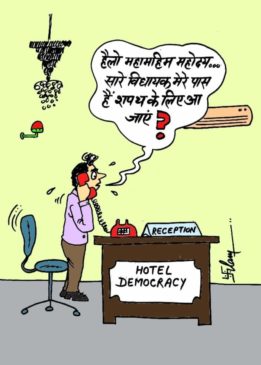 हैलो महामहिम महोदय...
सारे विधायक मेरे पास
हैं शपथ के लिए आ
जाएं ?
RECEPTION
HOTEL
DEMOCRACY